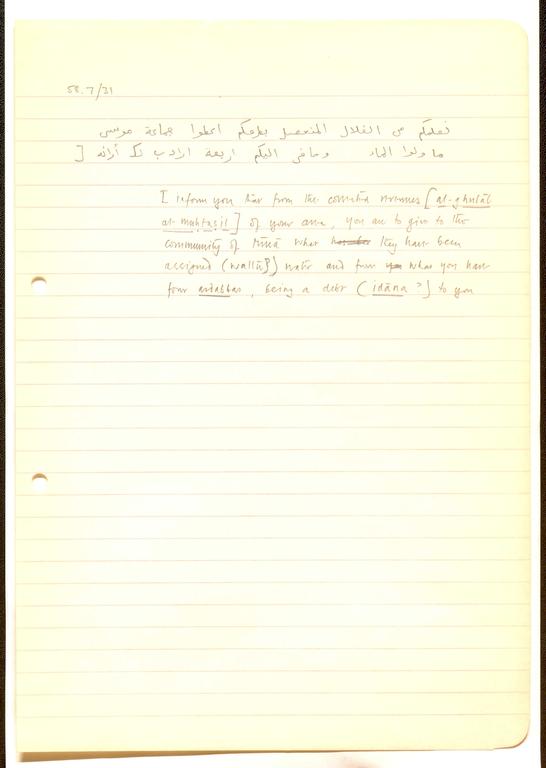 58.7/21
نعلمكم من الغلال المتحصل بطرفكم اعطوا جماعة موسى
ما ولوا الماء وما في اليكم اربعة ارادب لك أدانه ]
I inform you that from the collected revenues [al-ghulāl
al-muhtaṣil] of your area, you are to give to the
community of Mūsā what they have been
assigned (wallū?) water and from what you have
four ardabbas, being a debt (idāna?] to you